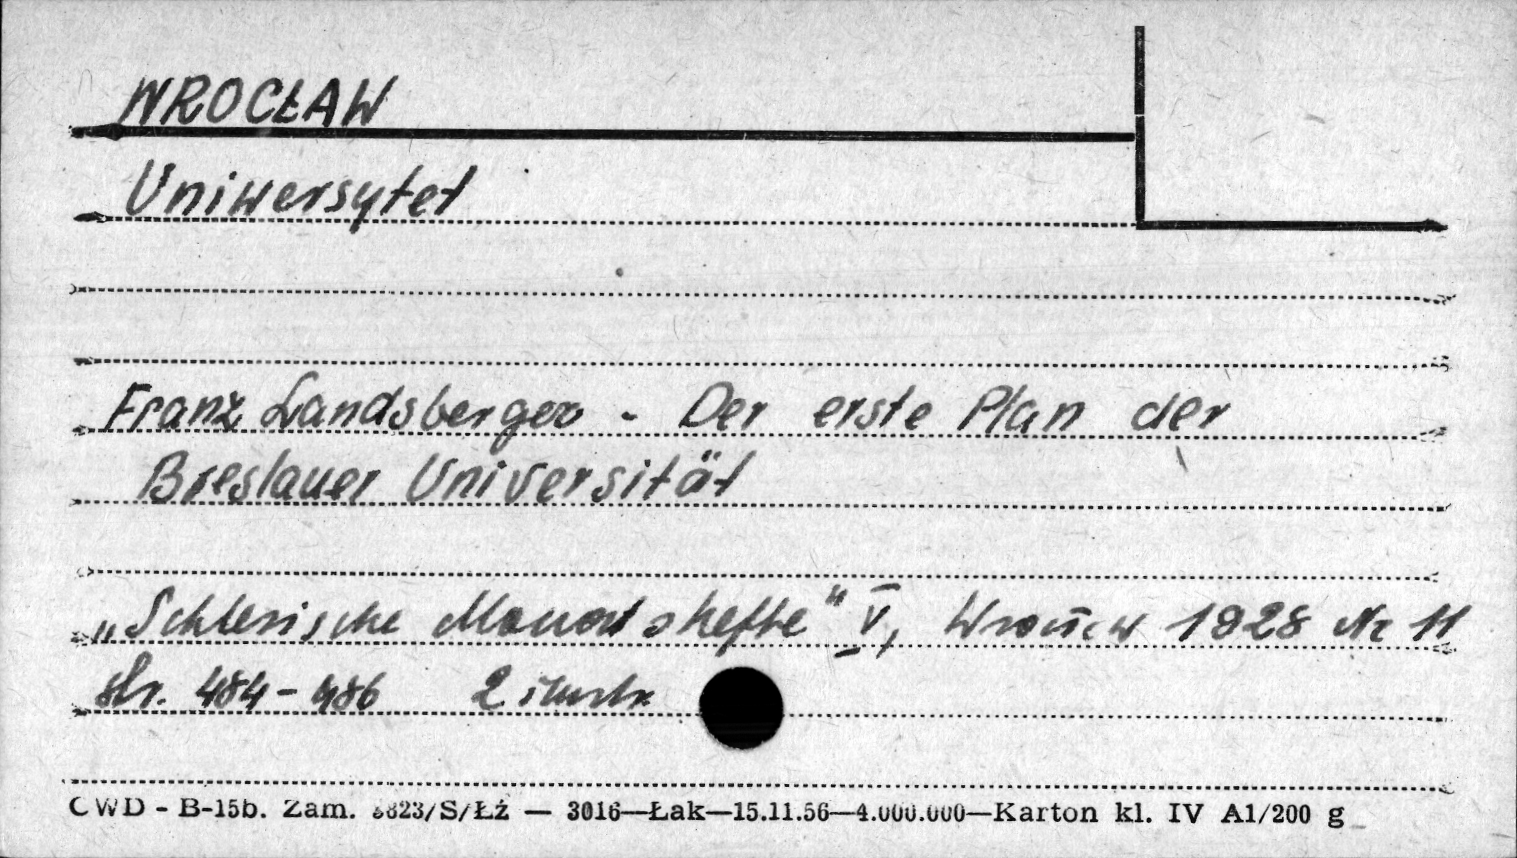 WROCŁAW
Uniwersytet
Franz Landsberger - Der erste Plan der
Breslauer Universität
„Schlesische Monatshefte" V, Wrocław 1928 Nr 11
str. 484-486 2 ilustr.
CWD - B-15b. Zam. 8823/S/Łź — 3016—Łak—15.11.56—4.000.000—Karton kl. IV A1/200 g